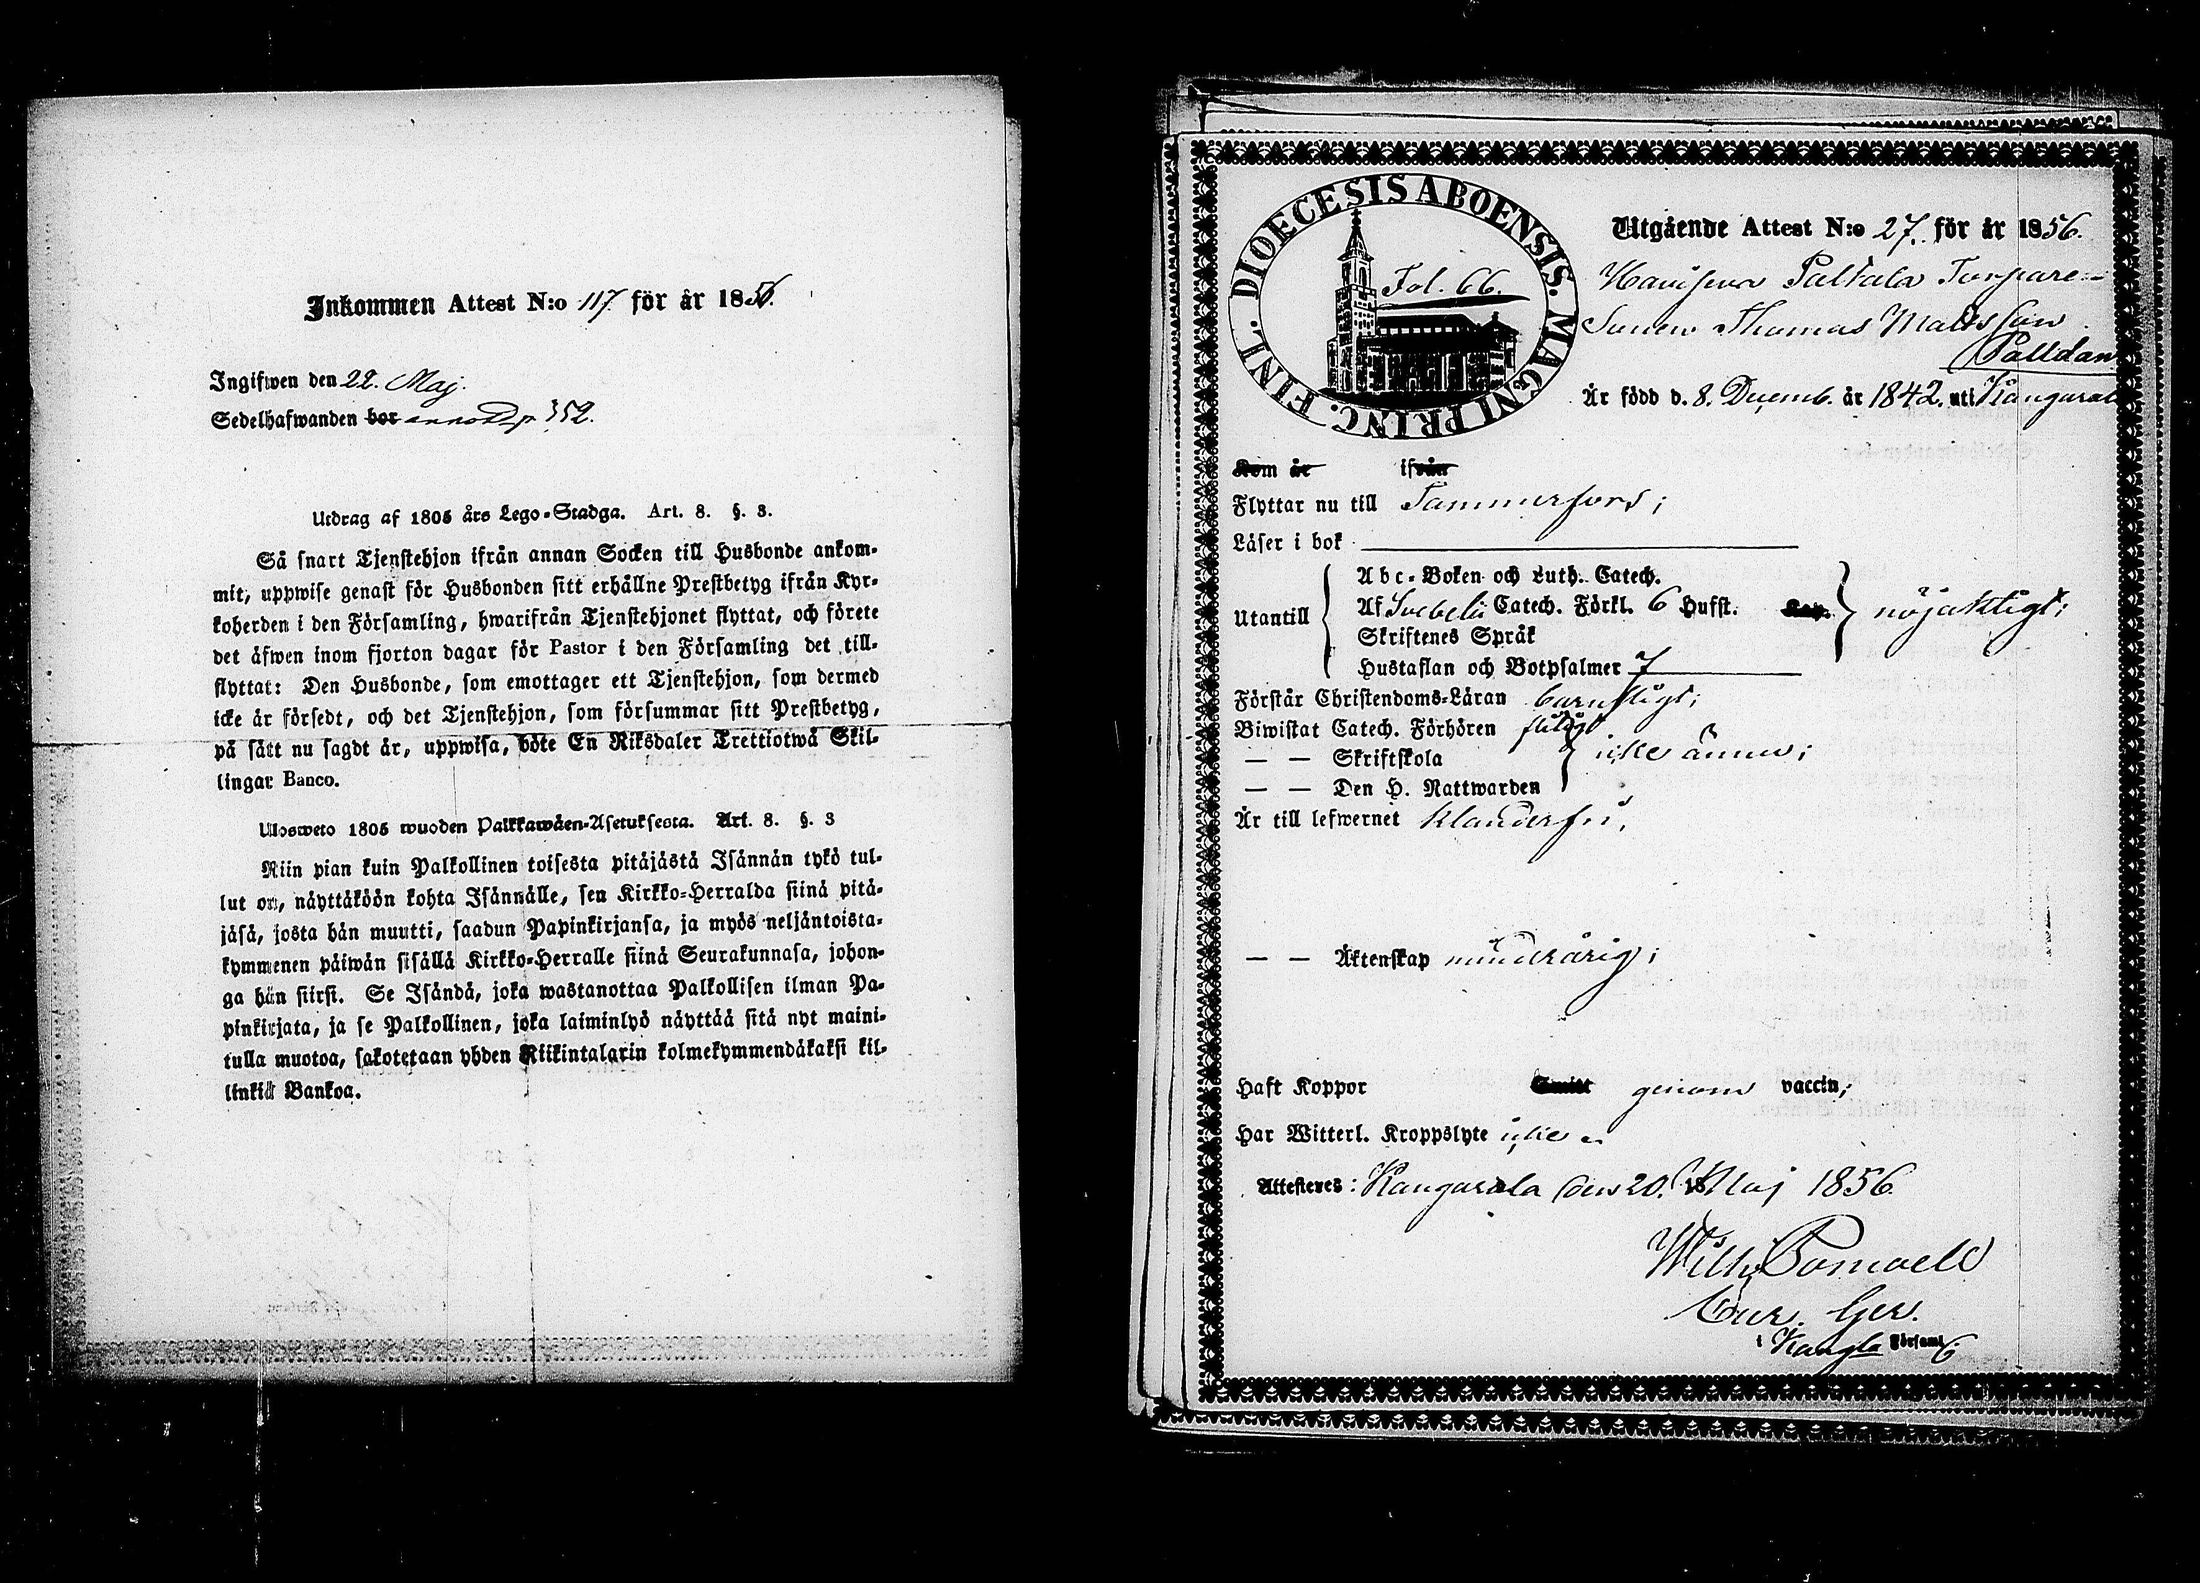 Inkommen Attest N:o 117. för år 1856.
Ingifwen den 22. Maj.
Sedelhafwanden bor 352.
Utdrag af 1805 års Lego-Stadga. Art. 8. §. 3.
Så snart Tjenstehjon ifrån annan Socken till Husbonde ankom-
mit, uppwise genast för Husbonden sitt erhållne Prestbetyg ifrån Kyr-
koherden i den Församling, hwarifrån Tjenstehjonet flyttat, och förete
det äfwen inom fjorton dagar för Pastor i den Församling det till-
flyttat: Den Husbonde, som emottager ett Tjenstehjon, som dermed
icke är försedt, och det Tjenstehjon, som försummar sitt Prestbetyg,
på sätt nu sagdt är, uppwisa, böte En Riksdaler Trettiotwå Skil-
lingar Banco.
Ulosweto 1805 wuoden Palkkawäen-Asetuksesta. Art. 8. §. 3
Niin pian kuin Palkollinen toisesta pitäjästä Isännän tykö tul-
lut on, näyttäköön kohta Isännälle, sen Kirkko-Herralda siinä pitä-
jäsä, josta hän muutti, saadun Papinkirjansa, ja myös neljäntoista-
kymmenen päiwän sisällä Kirkko-Herralle siinä Seurakunnasa, johon-
ga hän siirsi. Se Isändä, joka wastanottaa Palkollisen ilman Pa-
pinkirjata, ja se Palkollinen, joka laiminlyö näyttää sitä nyt maini-
tulla muotoa, sakotetaan yhden Riikintalarin kolmekymmendäkaksi kil-
linkiä Bankoa.
DIOECESIS ABOENSIS. MAGNI PRINC. FINL.
Fol. 66.
Utgående Attest N:o 27. för år 1856.
Paltala Torpare-
Sonen Thomas Matsson
Palldan
Är född d. 8. Decemb. år 1842. uti Kangasala
Kom år ifrån
Flyttar nu till Tammerfors;
Läser i bok
Utantill
Abc-Boken och Luth. Catech.
Af Svebelii Catech. Förkl. 6 Hufst. Kap.
Skriftenes Språk
Hustaflan och Botpsalmer 7
nöjaktigt;
Förstår Christendoms-Läran barnsligt;
Biwistat Catech. Förhören flitigt
— — Skriftskola
— — Den H. Nattwarden
icke ännu;
Är till lefwernet klanderfri,
— — Äktenskap minderårig;
Haft Koppor Smitt genom vaccin;
Har Witterl. Kroppslyte icke
Attesteres: Kangasala den 20. Maj 1856
Wilh. Pomoell
Cur. Ger.
i Kangla Församl